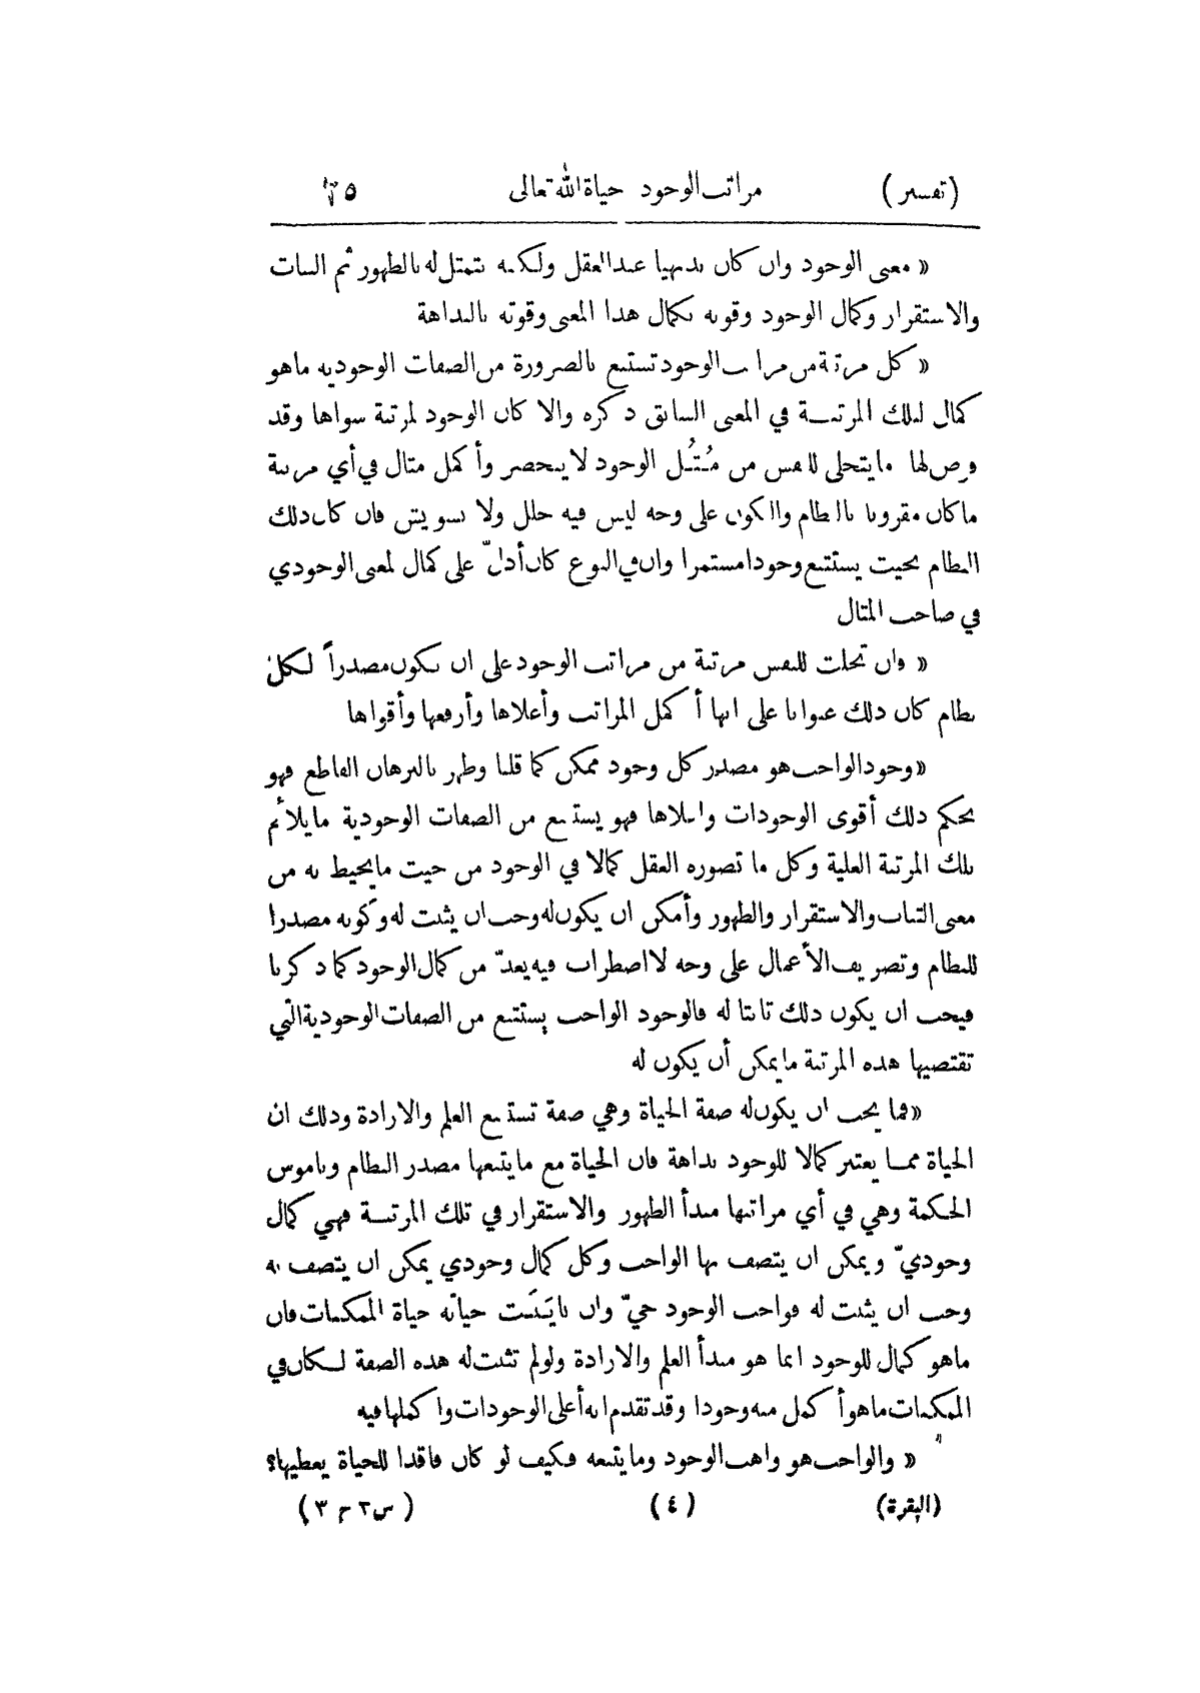 (تفسير) مراتب الوجود حياة الله تعالى ٢٥
« معنى الوجود وان كان بديهيا عند العقل ولكنه يتمثل له بالظهور ثم الثبات
والاستقرار وكمال الوجود وقوته بكمال هذا المعنى وقوته بالبداهة
« كل مرتبة من مراتب الوجود تستتبع بالضرورة من الصفات الوجودية ماهو
كمال لتلك المرتبة في المعنى السابق ذكره والا كان الوجود لمرتبة سواها وقد
فرض لها مايتجلى للنفس من مُثُل الوجود لاينحصر وأكمل مثال في أي مرتبة
ماكان مقرونا بالنظام والكون على وجه ليس فيه خلل ولا تشويش فان كان ذلك
النظام بحيث يستتبع وجودا مستمرا وان في النوع كان أدلّ على كمال لمعنى الوجودي
في صاحب المثال
« وان تجلت للنفس مرتبة من مراتب الوجود على ان تكون مصدراً لكل
نظام كان ذلك عنوانا على انها أكمل المراتب وأعلاها وأرفعها وأقواها
« وجود الواجب هو مصدر كل وجود ممكن كما قلنا وظهر بالبرهان القاطع فهو
بحكم ذلك أقوى الوجودات واعلاها فهو يستتبع من الصفات الوجودية مايلائم
تلك المرتبة العلية وكل ما تصوره العقل كمالا في الوجود من حيث مايحيط به من
معنى الثبات والاستقرار والظهور وأمكن ان يكون له وجب ان يثبت له وكونه مصدرا
للنظام وتصريف الأعمال على وجه لااضطراب فيه يعدّ من كمال الوجود كما ذكرنا
فيجب ان يكون ذلك ثابتا له فالوجود الواجب يستتبع من الصفات الوجودية التي
تقتضيها هذه المرتبة مايمكن أن يكون له
« فما يجب ان يكون له صفة الحياة وهي صفة تستتبع العلم والارادة وذلك ان
الحياة مما يعتبر كمالا للوجود بداهة فان الحياة مع مايتبعها مصدر النظام وناموس
الحكمة وهي في أي مراتبها مبدأ الظهور والاستقرار في تلك المرتبة فهي كمال
وجوديّ ويمكن ان يتصف بها الواجب وكل كمال وجودي يمكن ان يتصف به
وجب ان يثبت له فواجب الوجود حيّ وان باينت حياته حياة الممكنات فان
ماهو كمال للوجود انما هو مبدأ العلم والارادة ولولم تثبت له هذه الصفة لكان في
الممكنات ماهو أكمل منه وجودا وقد تقدم انه أعلى الوجودات واكملها فيه
« والواجب هو واهب الوجود ومايتبعه فكيف لو كان فاقدا للحياة يعطيها؟
(البقرة) (٤) (س٢ ج ٣)